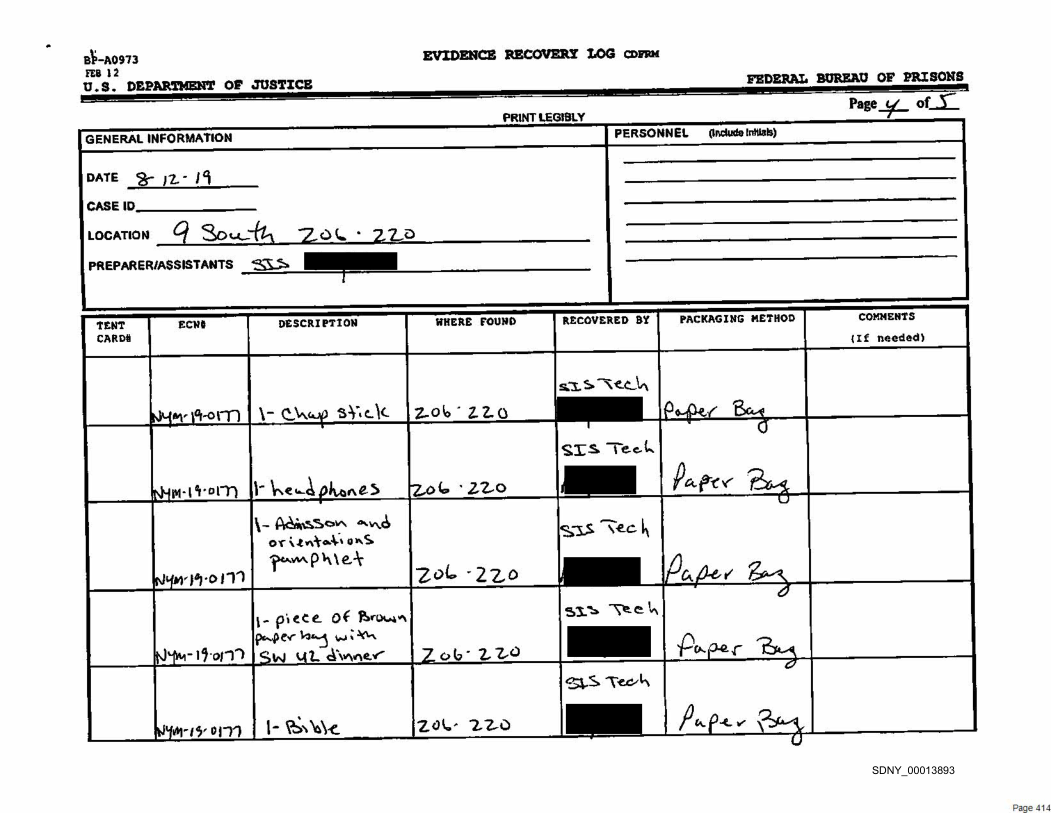 BP-A0973
FEB 12
U.S. DEPARTMENT OF JUSTICE
EVIDENCE RECOVERY LOG CDFRM
FEDERAL BUREAU OF PRISONS
Page 4 of 5
PRINT LEGIBLY
GENERAL INFORMATION
DATE 8-12-19
CASE ID
LOCATION 9 South Z06-220
PREPARER/ASSISTANTS SIS
PERSONNEL (Include Initials)
TENT CARD# ECN# DESCRIPTION WHERE FOUND RECOVERED BY PACKAGING METHOD COMMENTS (If needed)
NYM-19-0177 1- Chap stick Z06-220 SIS Tech Paper Bag
NYM-19-0177 1- headphones Z06-220 SIS Tech Paper Bag
NYM-19-0177 1- Admisson and orientations pamphlet Z06-220 SIS Tech Paper Bag
NYM-19-0177 1- piece of Brown paper bag with SW 42 dinner Z06-220 SIS Tech Paper Bag
NYM-19-0177 1- Bible Z06-220 SIS Tech Paper Bag
SDNY_00013893
Page 414